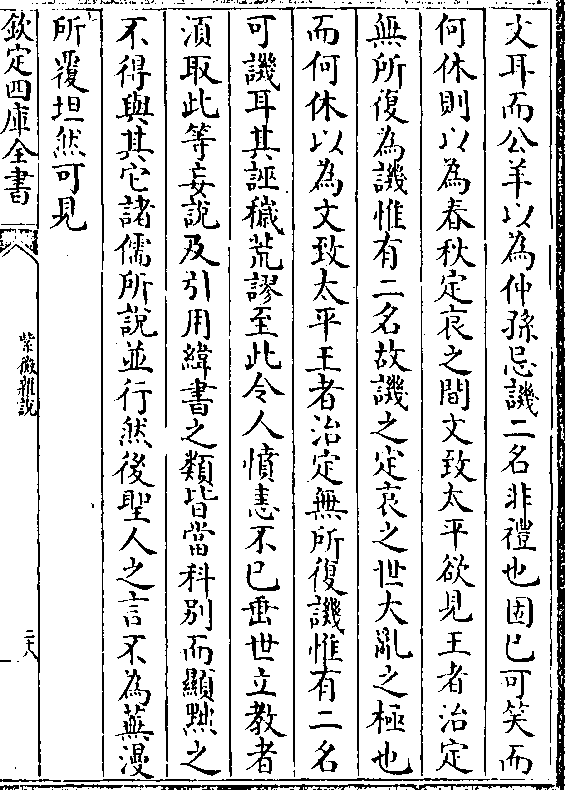 文耳而公羊以為仲孫忌譏二名非禮也固已可笑而
何休則以為春秋定哀之間文致太平欲見王者治定
無所復為譏惟有二名故譏之定哀之世大亂之極也
而何休以為文致太平王者治定無所復譏惟有二名
可譏耳其誣穢荒謬至此令人憤恚不已垂世立教者
湏取此等妄說及引用緯書之類皆當科别而顯黜之
不得與其它諸儒所說並行然後聖人之言不為蕪漫
所覆坦然可見
欽定四庫全書
紫微雜說
二八